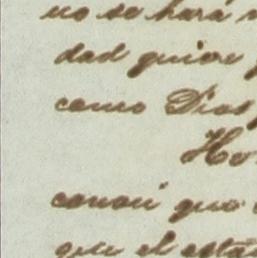 no se hará
dad quiere
como Dios
He
conocí que
que el está